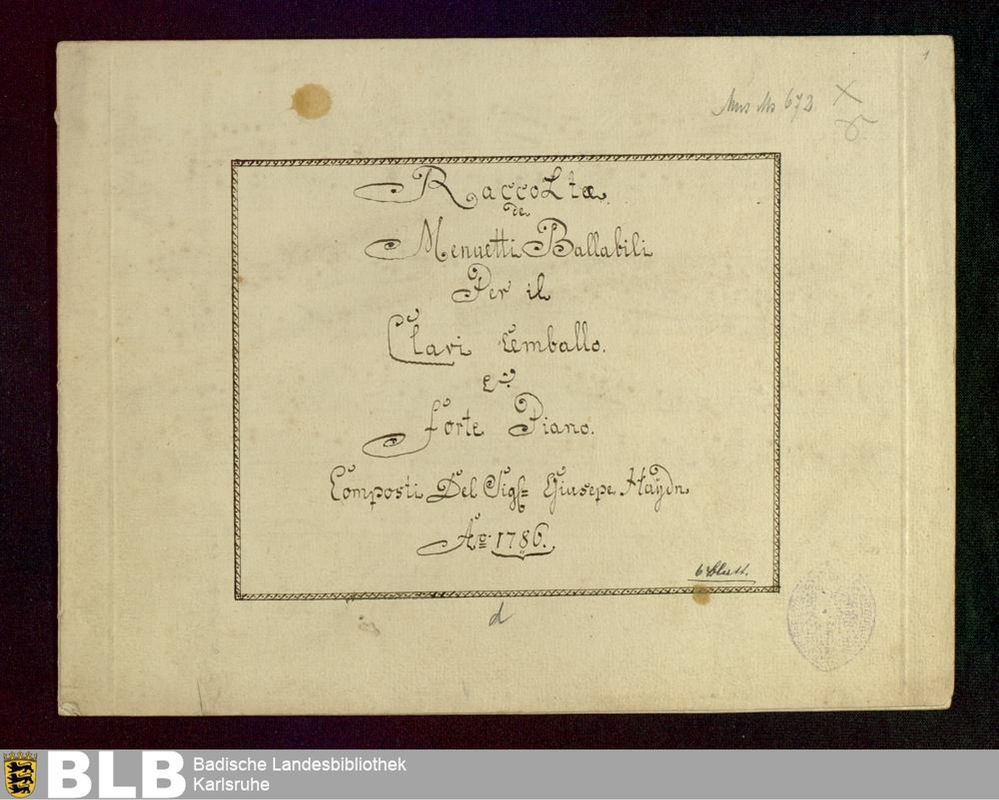 1
Mus Ms 672
Raccolta
de
Menuetti Ballabili
Per il
Clavi Cemballo.
e
Forte Piano.
Composti Del Sig: Giusepe Haydn
Ao: 1786.
6 Blatt.
d
BLB
Badische Landesbibliothek
Karlsruhe